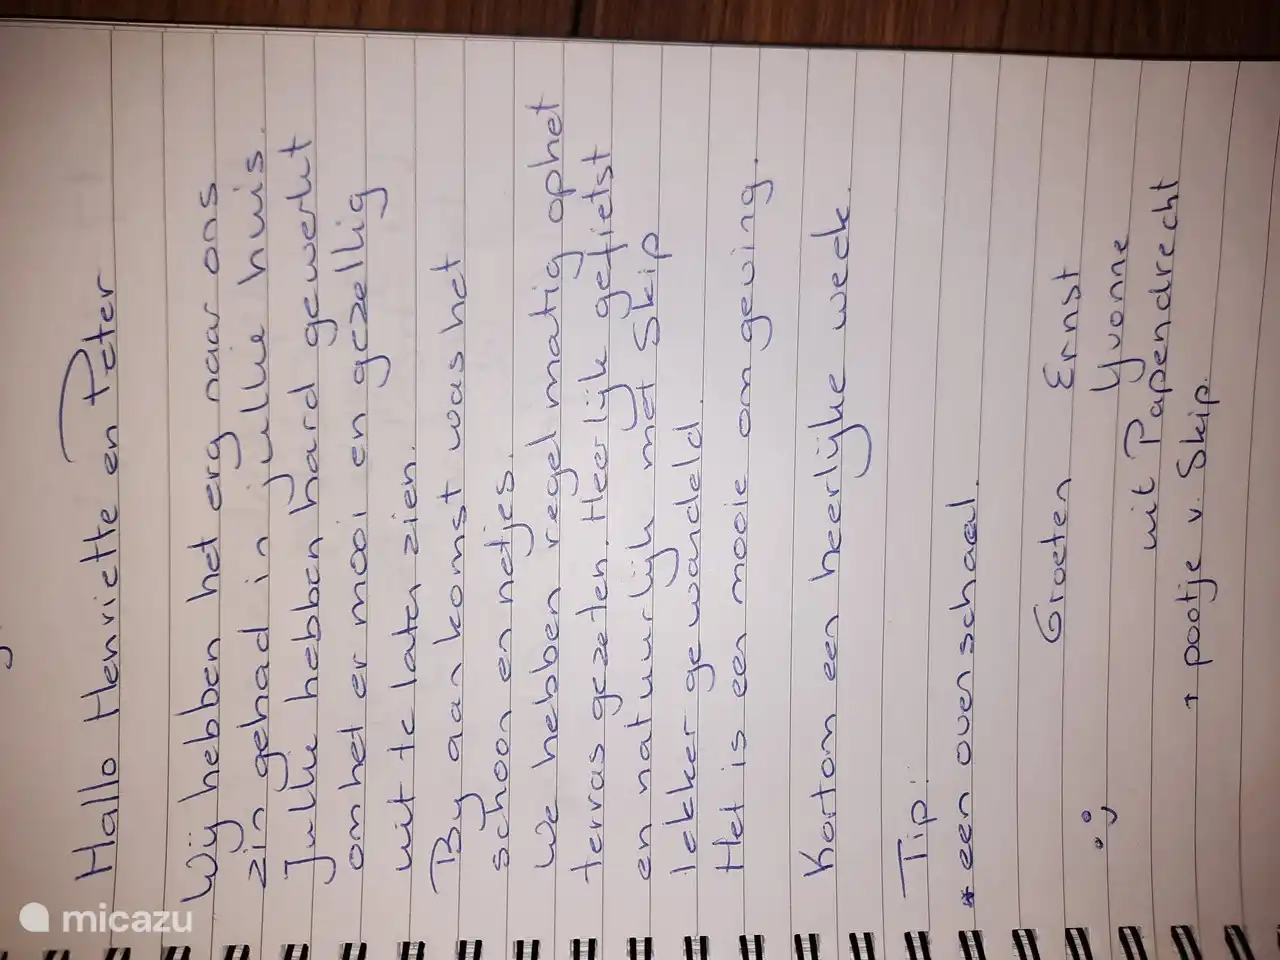 Hallo Henriette en Peter
Wij hebben het erg naar ons
zin gehad in jullie huis.
Jullie hebben hard gewerkt
om het er mooi en gezellig
uit te laten zien.
By aankomst was het
schoon en netjes.
We hebben regelmatig op het
terras gezeten. Heerlijk gefietst
en natuurlijk met Skip
lekker gewandeld.
Het is een mooie omgeving.
Kortom een heerlijke week.
Tip:
* een ovenschaal.
Groeten Ernst
Yvonne
uit Papendrecht
+ pootje v. Skip.
micazu